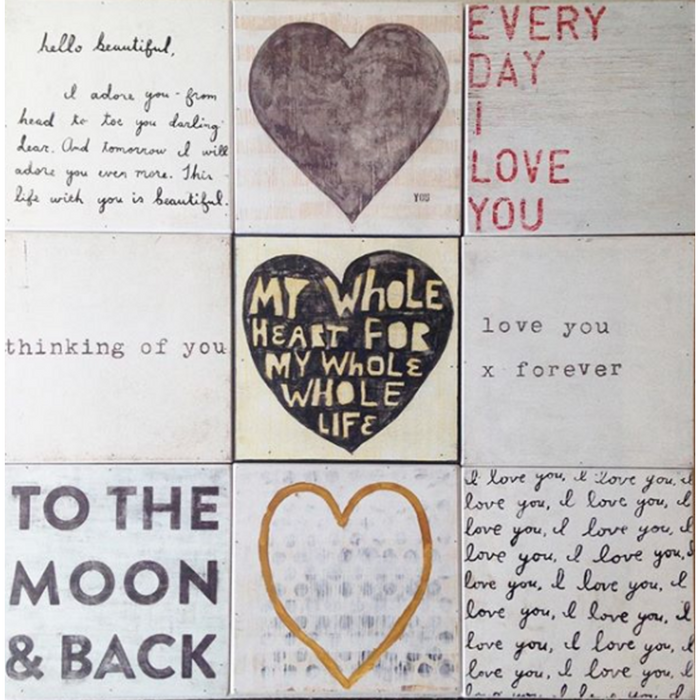 hello beautiful,
I adore you - from
head to toe you darling
dear. And tomorrow I will
adore you even more. This
life with you is beautiful.
YOU
EVERY
DAY
I
LOVE
YOU
thinking of you
MY WHOLE
HEART FOR
MY WHOLE
WHOLE
LIFE
love you
x forever
TO THE
MOON
& BACK
I love you, I love you, I
love you, I love you, I
love you, I love you, I
love you, I love you, I
love you, I love you, I
love you, I love you, I
love you, I love you, I
love you, I love you, I